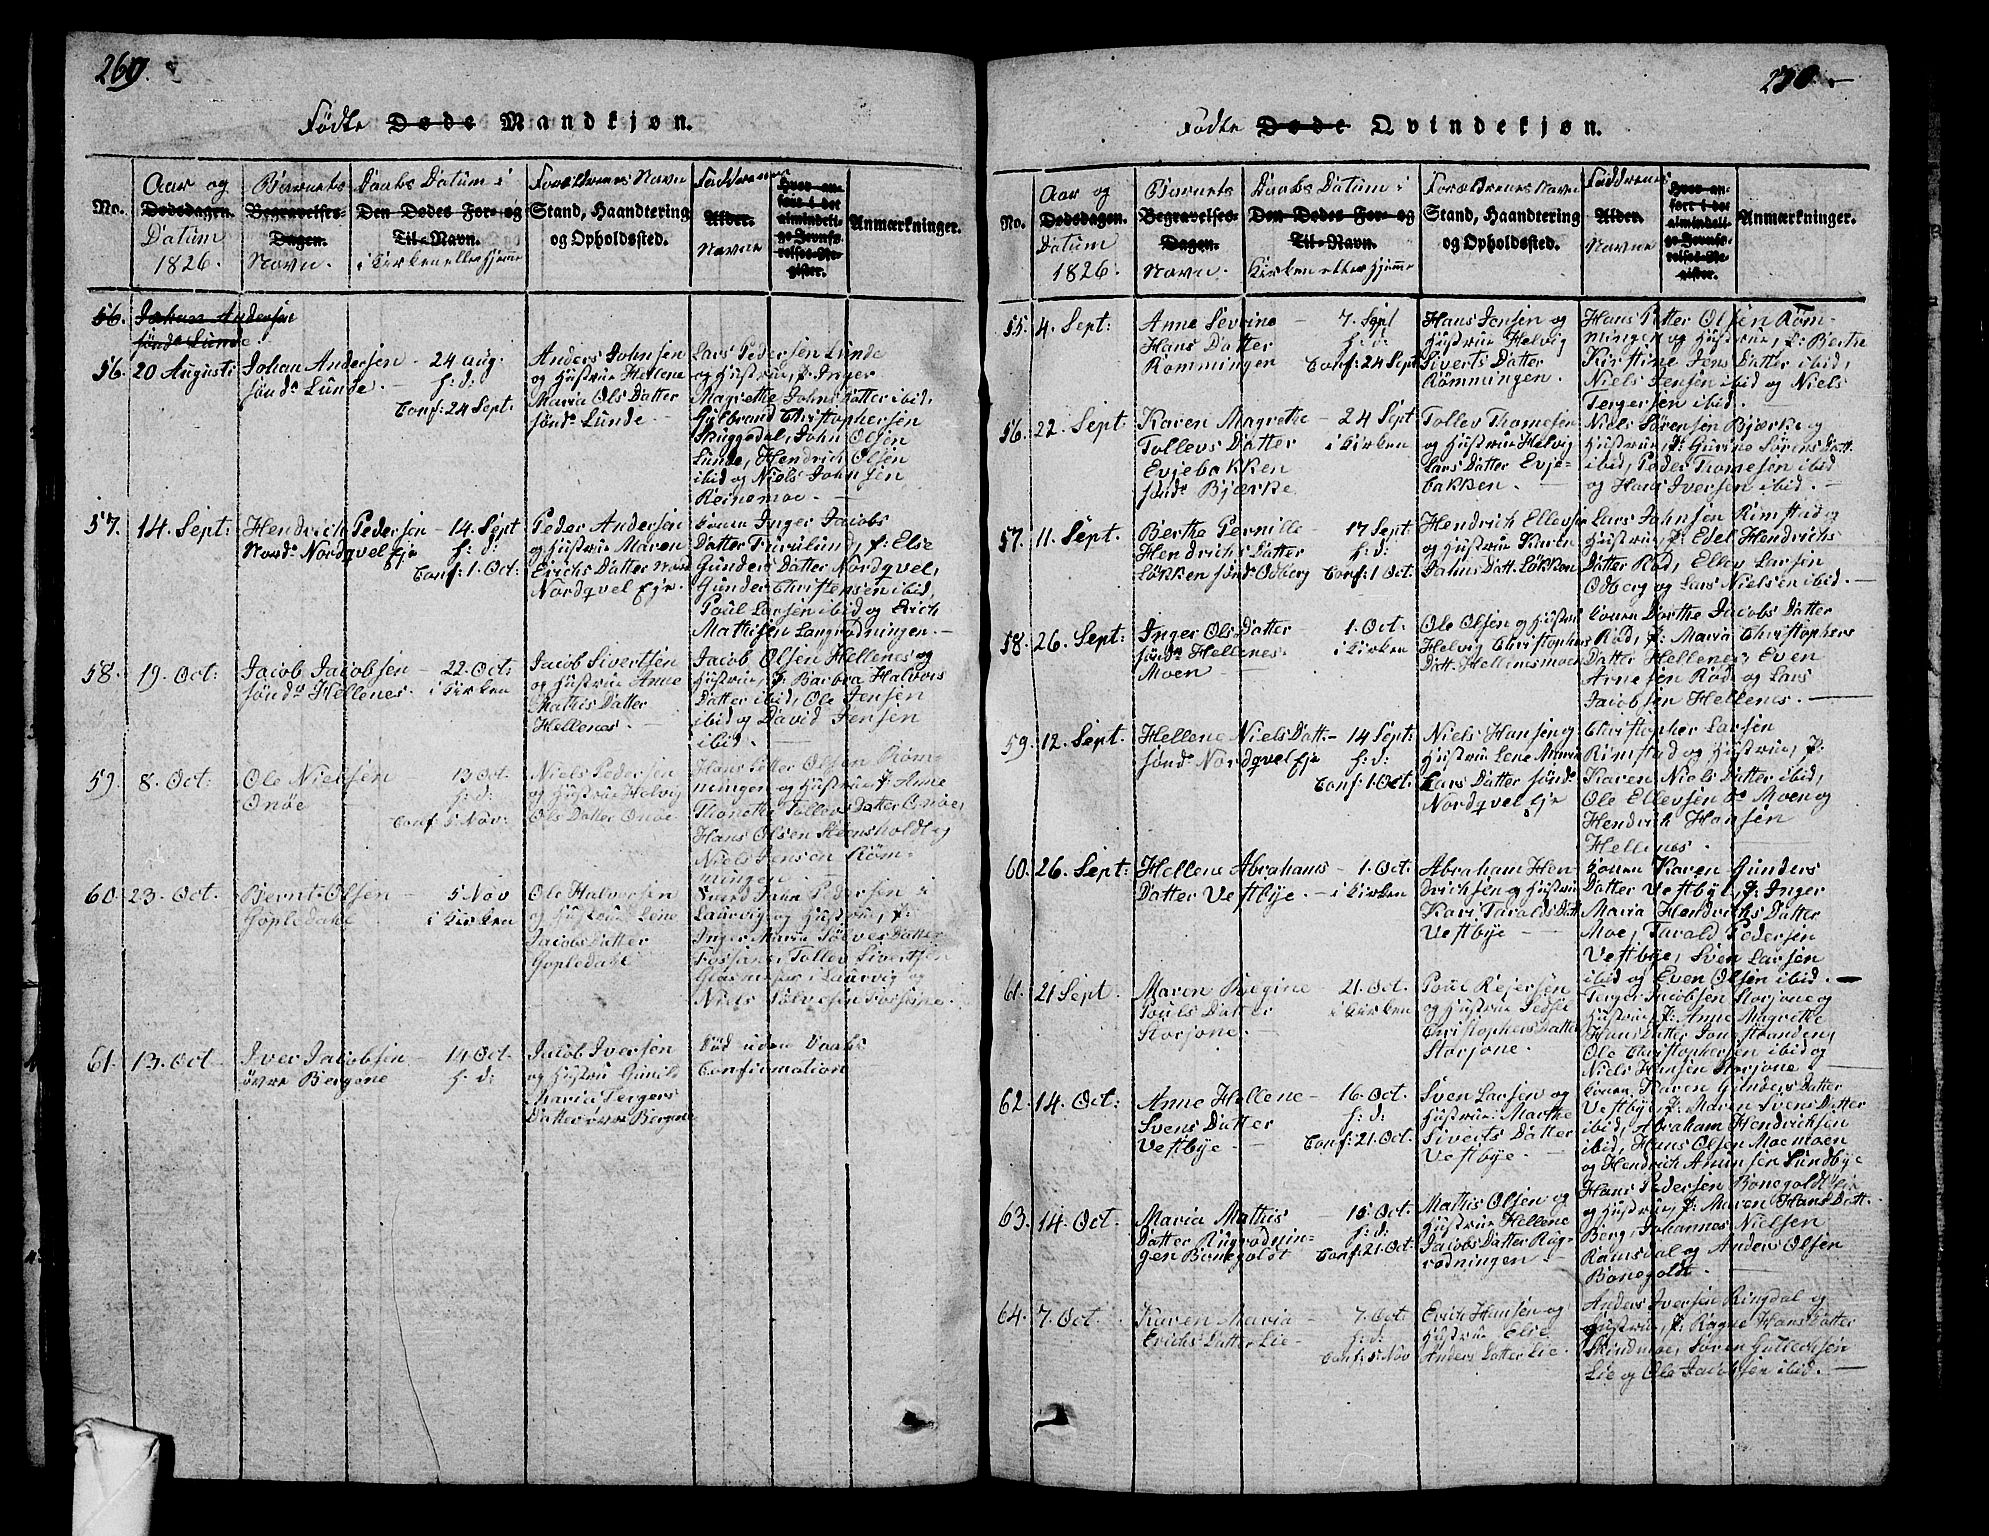 269.
Fødte Døde Mandkjøn.
No.
Aar og
Dødsdagen.
Datum
1826.
Barnets
Begravelses-
Dagen.
Navn.
Daabs Datum i
Den Dødes For- og
Til-Navn.
i Kirken eller hjemme
Forældrenes Navn
Stand, Haandtering
og Opholdssted.
Faddernes
Alder.
Navne
Hvor an-
ført i det
almindeli-
ge Jevnfø-
relses-Re-
gister.
Anmærkninger.
56. Johan Andersen
sønd. Lunde
56. 20 Augusti
Johan Andersen
sønd. Lunde.
24 Aug.
h: d:
Conf: 24 Sept:
Anders Johnsen
og Hustrue Hellene
Maria Ols Datter
sønd. Lunde
Lars Pedersen Lunde
og Hustrue, P: Inger
Magrethe Johns Datter ibid,
Gulbrand Christophersen
Skuggedal, John Olsen
Lunde, Hendrich Olsen
ibid og Niels Johnsen
Reinemoe.
57. 14. Sept:
Hendrich Pedersen
Nord. Nordqvel Eje
14. Sept
h: d:
Conf: 1. Oct:
Peder Andersen
og Hustrue Maren
Erichs Datter Nord
Nordqvel Eje.
Konen Inger Jacobs
Datter Trirulund, P: Else
Gunders Datter Nordqvel,
Gunder Christensen ibid,
Poul Larsen ibid og Erich
Mathisen Langrødningen.
58. 19. Oct:
Jacob Jacobsen
sønd. Hellenes.
22. Oct:
i Kirken
Jacob Sivertsen
og Hustrue Anne
Mathis Datter
Hellenes.
Jacob Olsen Hellenes og
Hustrue, P: Barbra Halvors
Datter ibid, Ole Jensen
ibid og David Jensen
ibid.
59. 8. Oct:
Ole Nielsen
Onøe
13 Oct.
h: d:
Conf. 5 Nov:
Niels Pedersen
og Hustrue Helvig
Ols Datter Onøe
Hans Petter Olsen Røm-
mingen og Hustrue, P: Anne
Thonette Tollevs Datter Onøe,
Hans Olsen Steensholdt og
Niels Jensen Røm-
mingen.
60. 23. Oct.
Bernt Olsen
Gopledahl
5 Nov
i Kirken
Ole Halversen
og Hustrue Lene
Jacobs Datter
Gopledahl
Pedersen i
Laurvig og Hustrue, P:
Inger Maria Sølves Datter
Fossane, Tollev Sivertsen
i Laurvig og
Niels Sølvesen Fossane.
61. 13. Oct
Iver Jacobsen
øvre Bergene
14 Oct.
h: d:
Jacob Iversen
og Hustrue Gunild
Maria Tergers
Datter øvre Bergene
Død uden Daabs
Confirmation
270.
Fødte Døde Qvindekjøn.
No.
Aar og
Dødsdagen.
Datum
1826.
Barnets
Begravelses-
Dagen.
Navn.
Daabs Datum i
Den Dødes For- og
Til-Navn.
Kirken eller hjemme
Forældrenes Navn
Stand, Haandtering
og Opholdssted.
Faddernes
Alder.
Navne
Hvor an-
ført i det
almindeli-
ge Jevnfø-
relses-Re-
gister.
Anmærkninger.
55. 4. Sept:
Anne Sevrine
Hans Datter
Rømmingen
7. Sept
h: d:
Conf: 24 Sept
Hans Jensen og
Hustrue Helvig
Siverts Datter
Rømmingen.
Hans Petter Olsen Røm-
mingen og Hustrue, P: Berthe
Kirstine Jens Datter ibid,
Niels Jensen ibid og Niels
Tergersen ibid.
56. 22. Sept:
Karen Magrethe
Tollevs Datter
Evjebakken
sønd. Bjerke
24 Sept
i Kirken
Tollev Thomesen
og Hustrue Helvig
Lars Datter Evje-
bakken.
Niels Sørensen Bjærke og
Hustrue, P: Gurine Sørens Datt.
ibid, Peder Thomesen ibid
og Hans Iversen ibid.
57. 11. Sept.
Berthe Pernille
Hendrichs Datter
Løkken sønd. Odberg
17 Sept:
h: d:
Conf: 1 Oct:
Hendrich Ellevsen
og Hustrue Karen
Johns Datt. Løkken
Lars Johnsen Rimstad og
Hustrue, P: Edel Hendrichs
Datter Rød, Ellev Larsen
Odberg og Lars Nielsen ibid.
58. 26. Sept:
Inger Ols Datter
sønd. Hellenes
Moen
1. Oct:
i Kirken
Ole Olsen og Hustrue
Helvig Christophers
Datt: Hellenesmoen
Konen Dorthe Jacobs Datter
Rød, P: Maria Christophers
Datter Hellenes, Even
Arnesen Rød og Lars
Jacobsen Hellenes.
59. 12. Sept.
Hellene Niels Datt.
sønd. Nordqvel Eje
14 Sept:
h: d:
Conf: 1. Oct:
Niels Hansen og
Hustrue Lene Maria
Lars Datter sønd.
Nordqvel Eje
Christopher Larsen
Rimstad og Hustrue, P:
Karen Niels Datter ibid,
Ole Ellevsen Moen og
Hendrich Hansen
Hellenes.
60. 26. Sept:
Hellene Abrahams
Datter Vestbye.
1. Oct:
i Kirken
Abraham Hen-
drichsen og Hustrue
Kari Taralds Datt.
Vestbye
Konen Karen Gunders
Datter Vestbye, P: Inger
Maria Hendrichs Datter
Moe, Tarald Pedersen
Vestbye, Sven Larsen
ibid og Even Olsen ibid.
61. 21 Sept.
Maren Regine
Pouls Datter
Storjone.
21. Oct:
i Kirken
Poul Rejersen
og Hustrue Sedsel
Christophers Datter
Storjone.
Terger Jacobsen Storjone og
Hustrue, P: Anne Magrethe
Hans Datter Jonstranden,
Ole Christophersen ibid og
Niels Hansen Storjone
62. 14. Oct:
Anne Hellene
Svens Datter
Vestbye.
16. Oct:
h: d:
Conf: 21. Oct.
Sven Larsen og
Hustrue: Marthe
Siverts Datter
Vestbye.
Konen Karen Gunders Datter
Vestbye, P: Maren Svens Datter
ibid, Abraham Hendrichsen
ibid, Hans Olsen Moemoen
og Hendrich Amunsen Sundbye
63. 14. Oct.
Maria Mathis
Datter Rugrødnin-
gen Bonegoldt
15. Oct:
h: d:
Conf: 21. Oct.
Mathis Olsen og
Hustrue Hellene
Jacobs Datter Rug-
rødningen
Hans Pedersen Bonegoldt Eje
og Hustrue, P: Maren Hans Datt.
Berg, Johannes Nielsen
Ramsdal og Anders Olsen
Bonegoldt.
64. 7. Oct.
Karen Maria
Erichs Datter Lie
7. Oct:
h: d:
Conf: 5 Nov
Erich Hansen og
Hustrue Else
Anders Datter Lie.
Anders Iversen Ringdal og
Hustrue, P: Ragne Hans Datter
Skindmoe, Søren Gullechsen
Lie og Ole Jacobsen ibid.